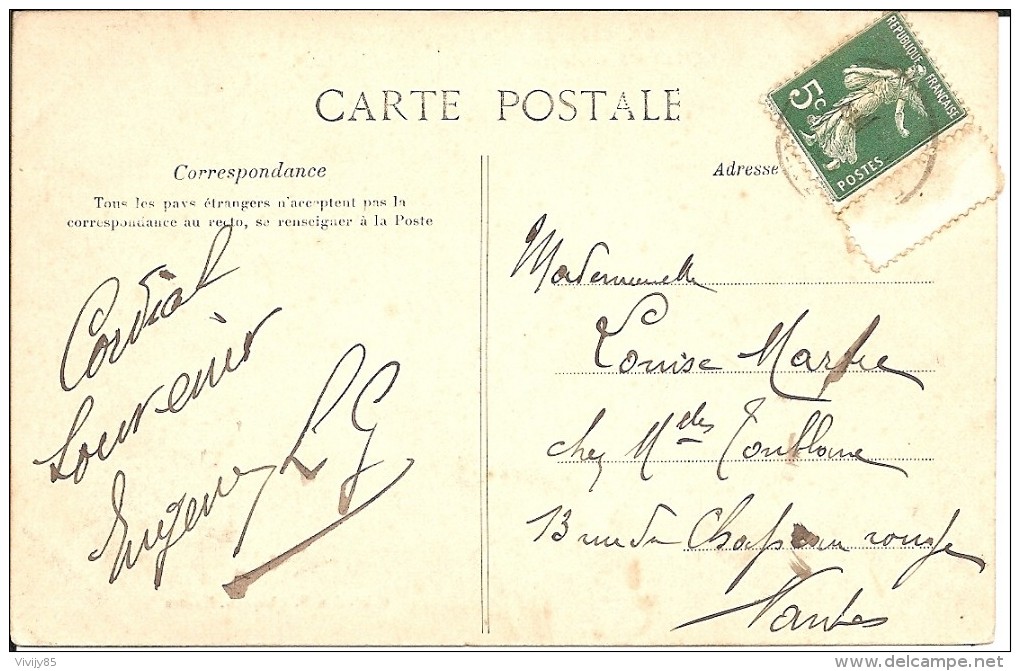 CARTE POSTALE
RÉPUBLIQUE FRANÇAISE
5c
POSTES
Correspondance
Tous les pays étrangers n'acceptent pas la
correspondance au recto, se renseigner à la Poste
Adresse
Cordial
Souvenir
Eugene LG
Mademoiselle
Louise
chez Mdes Toublanc
13 rue du Chapeau rouge
Nantes
Vivij85
delcampe.net